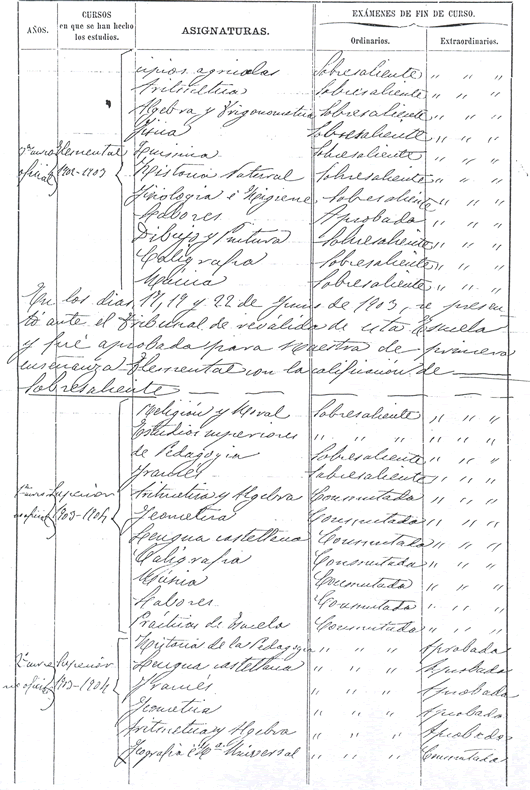 AÑOS. CURSOS en que se han hecho los estudios. ASIGNATURAS. EXÁMENES DE FIN DE CURSO.
Ordinarios. Extraordinarios.
cipios agrícolas Sobresaliente " " "
Aritmética Sobresaliente " " "
Algebra y Trigonometría Sobresaliente " " "
Física Sobresaliente " " "
Elemental Química Sobresaliente " " "
oficial 1902-1903 Historia Natural Sobresaliente " " "
Fisiología é Higiene Sobresaliente " " "
Labores Aprobado " " "
Dibujo y Pintura Sobresaliente " " "
Caligrafía Sobresaliente " " "
Música Sobresaliente " " "
En los días 17, 19 y 22 de Junio de 1903, se presen
tó ante el Tribunal de reválida de esta Escuela
y fué aprobada para Maestra de primera
enseñanza Elemental con la calificación de
Sobresaliente
Religión y Moral Sobresaliente " " "
Estudios superiores " " " " " "
de Pedagogía Sobresaliente " " "
Francés Sobresaliente " " "
Superior Aritmética y Algebra Conmutada " " "
no oficial 1903-1904 Geometría Conmutada " " "
Lengua castellana Conmutada " " "
Caligrafía Conmutada " " "
Música Conmutada " " "
Labores Conmutada " " "
Prácticas de Escuela Conmutada " " "
Historia de la Pedagogía " " " Aprobada
Superior Lengua castellana " " " Aprobada
no oficial 1903-1904 Francés " " " Aprobada
Geometría " " " Aprobada
Aritmética y Algebra " " " Aprobada
Geografía é Hª Universal " " " Conmutada